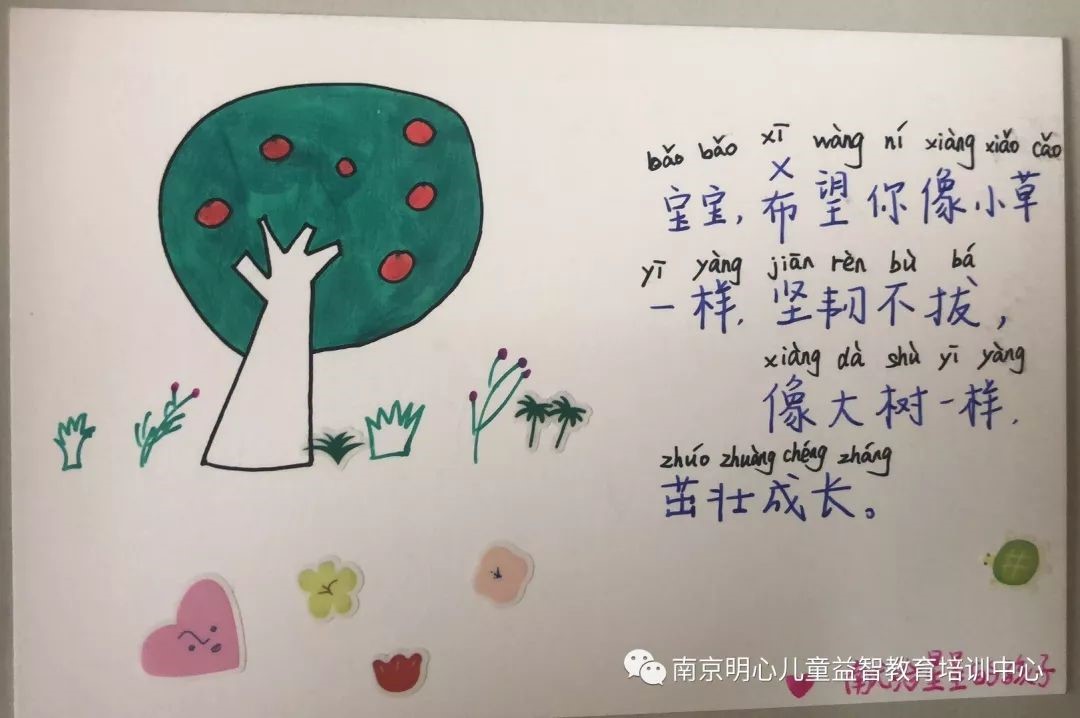 bǎo bǎo xī wàng ní xiàng xiǎo cǎo
宝宝，希望你像小草
yī yàng jiān rèn bù bá
一样，坚韧不拔，
xiàng dà shù yī yàng
像大树一样，
zhuó zhuàng chéng zháng
茁壮成长。
南京明心儿童益智教育培训中心